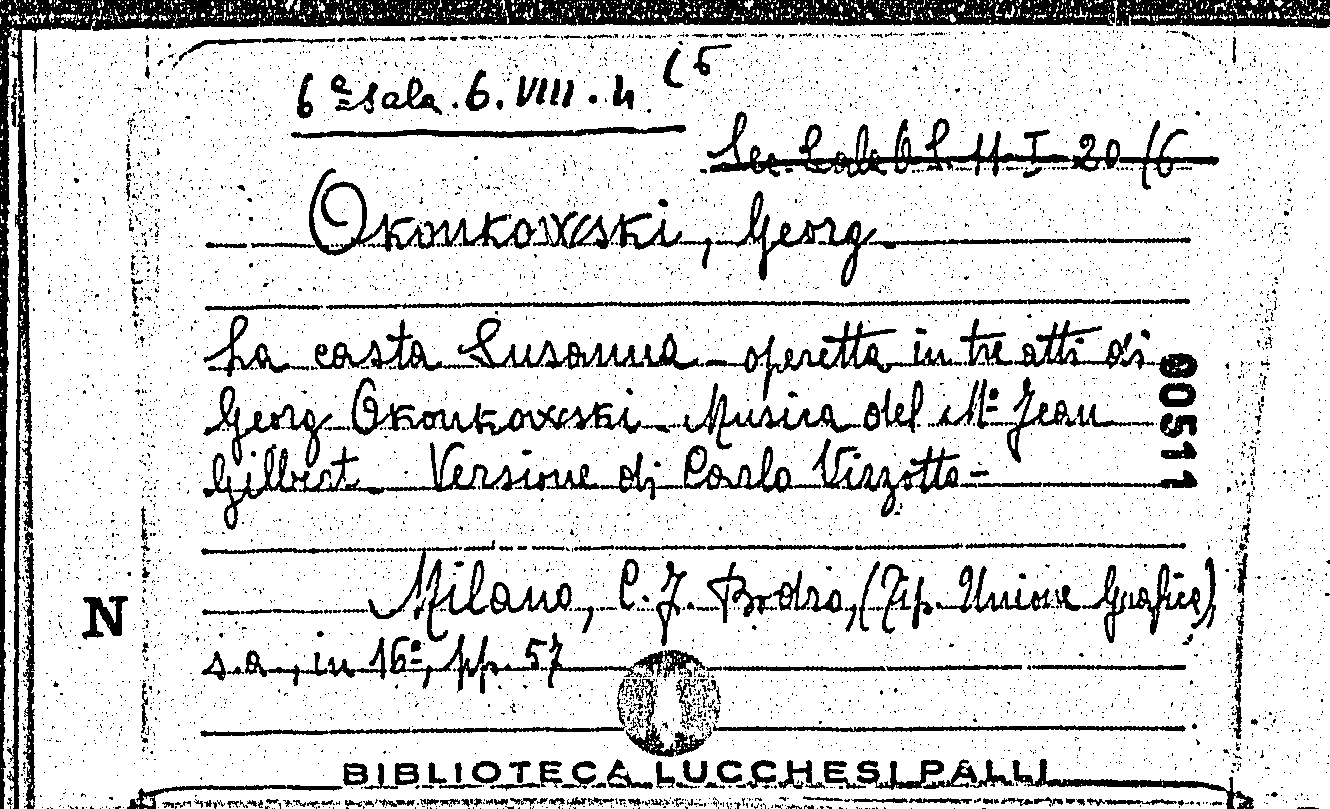 6ª Sala. 6. VIII. 4. (6
Sec. Sala O S. 11 I 20 (6
Okonkowski, Georg.
La casta Susanna - operetta in tre atti di
Georg Okonkowski. Musica del Mº Jean
Gilbert. Versione di Carlo Vizzotto -
00511
Milano, C. J. Bodro, (Tip. Unione Grafica),
N
s.a., in 16º, pp. 57
BIBLIOTECA LUCCHESI PALLI